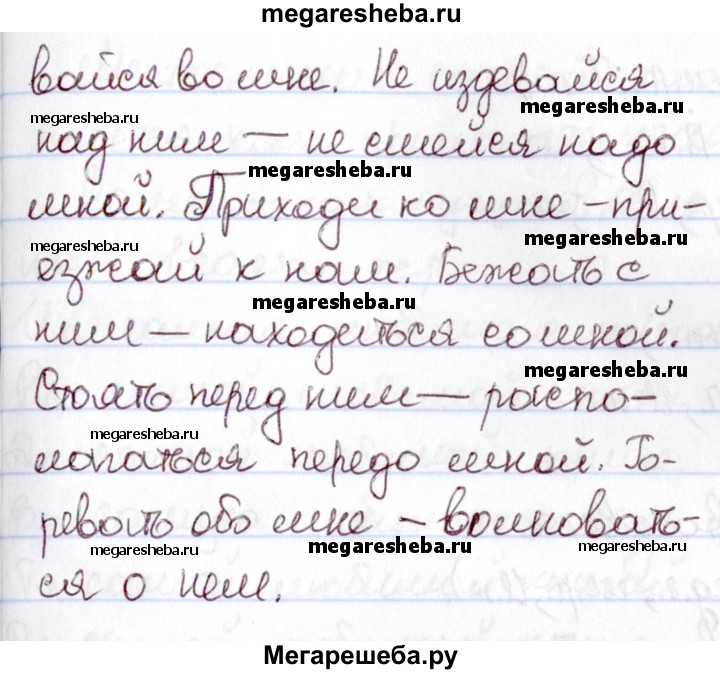 megaresheba.ru
вайся во мне. Не издевайся
megaresheba.ru
megaresheba.ru
над ним — не смейся надо
megaresheba.ru
мной. Приходи ко мне - при-
megaresheba.ru
megaresheba.ru
езжай к нам. Бежать с
megaresheba.ru
ним — находиться со мной.
megaresheba.ru
Стоять перед ним — распо-
megaresheba.ru
лагаться передо мной. Го-
megaresheba.ru
ревать обо мне - волновать-
megaresheba.ru
megaresheba.ru
megaresheba.ru
ся о нем.
Мегарешеба.ру